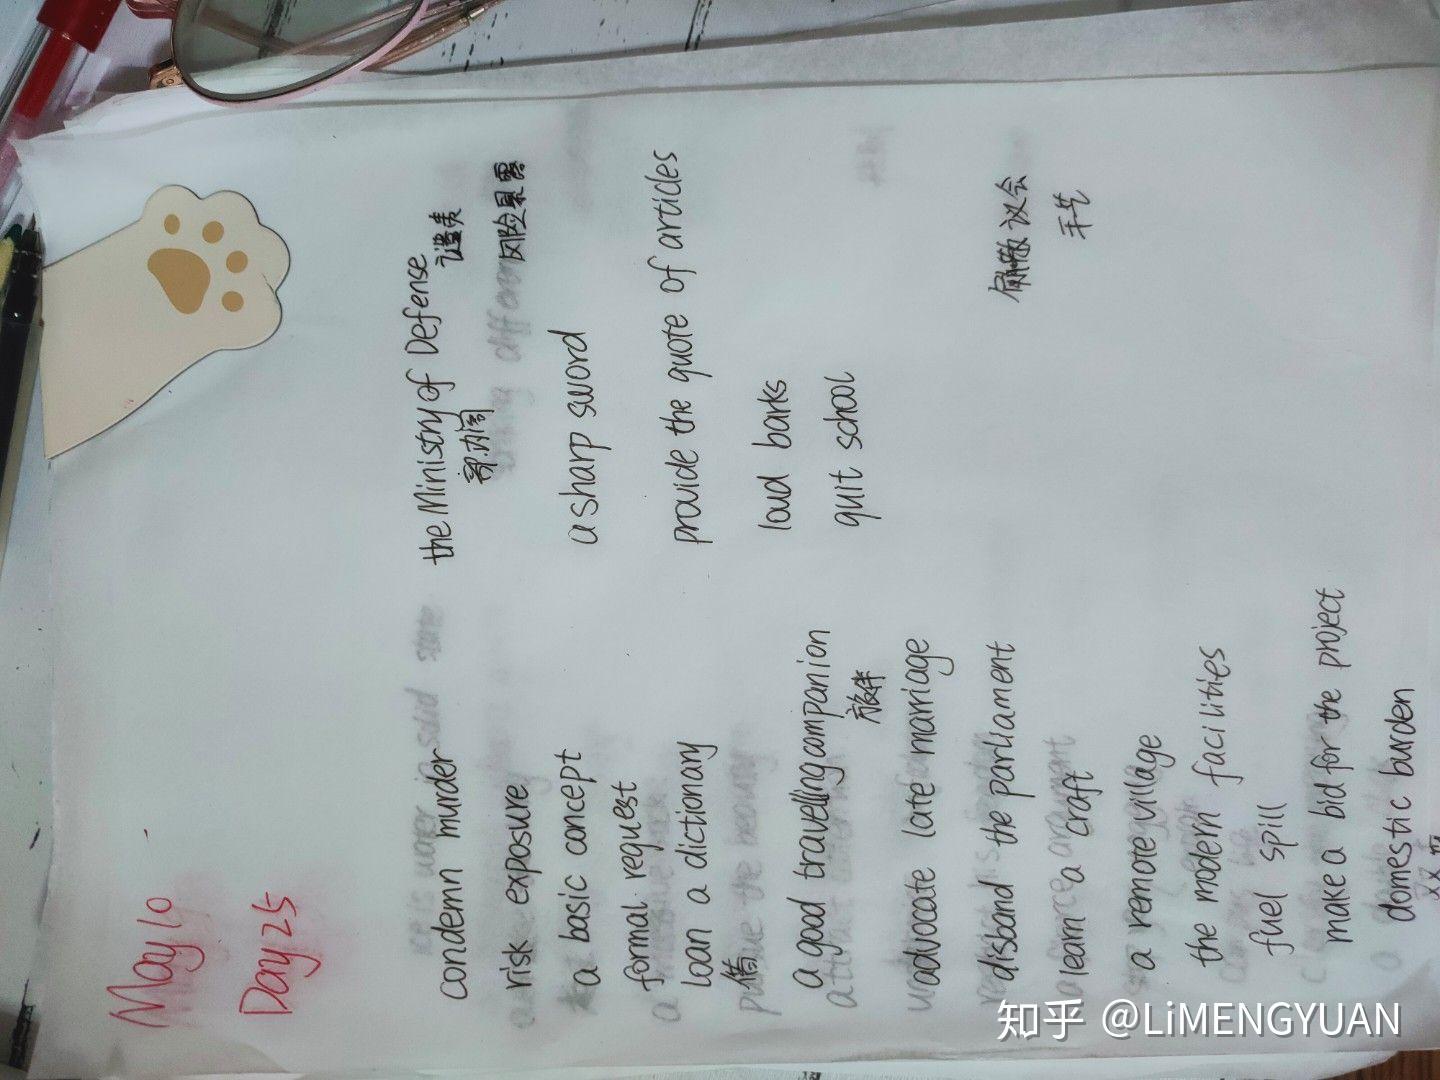 May 10
Day 25
condemn murder
risk exposure
a basic concept
formal request
loan a dictionary
借
a good travelling companion
旅伴
advocate late marriage
disband the parliament
learn a craft
a remote village
the modern facilities
fuel spill
make a bid for the project
domestic burden
the Ministry of Defense
部.内阁
谴责
风险暴露
a sharp sword
provide the quote of articles
loud barks
quit school
解散议会
手艺
知乎 @LiMENGYUAN